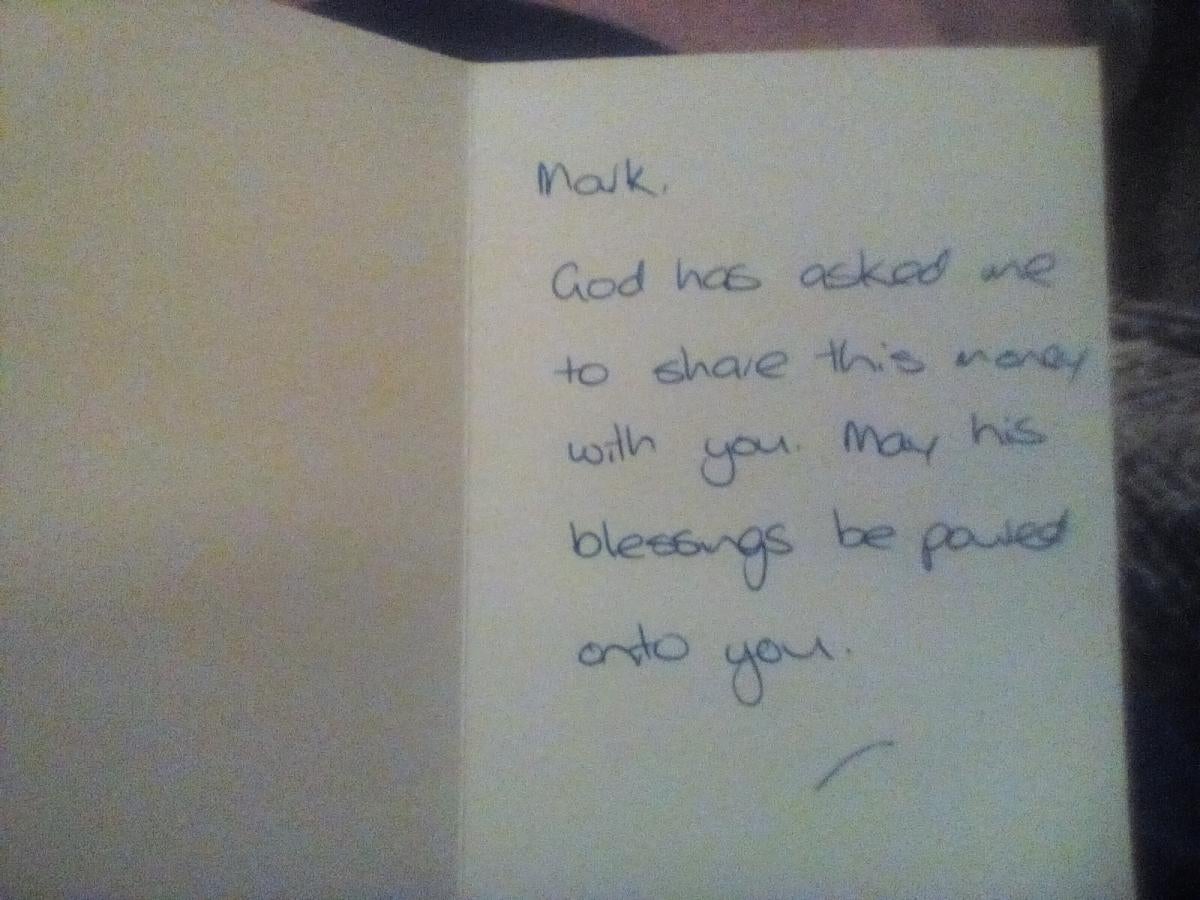 Mark.
God has asked me
to share this money
with you. May his
blessings be poured
onto you.